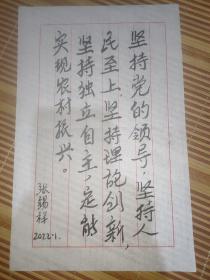 坚持党的领导，坚持人
民至上，坚持理论创新，
坚持独立自主，定能
实现农村振兴。
张锡祥
2022.1.